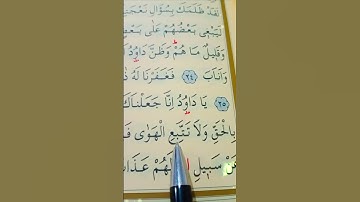 لَقَدْ ظَلَمَكَ بِسُؤَالِ نَعْجَتِ
لَيَبْغٖى بَعْضُهُمْ عَلٰى بَعْضٍ
وَقَلٖيلٌ مَا هُمْ وَظَنَّ دَاوُدُ
وَاَنَابَ ﴿٢٤﴾ فَغَفَرْنَا لَهُ
﴿٢٥﴾ يَا دَاوُدُ اِنَّا جَعَلْنَاكَ
بِالْحَقِّ وَلَا تَتَّبِعِ الْهَوٰى
عَنْ سَبٖيلِ لَهُمْ عَذَابٌ